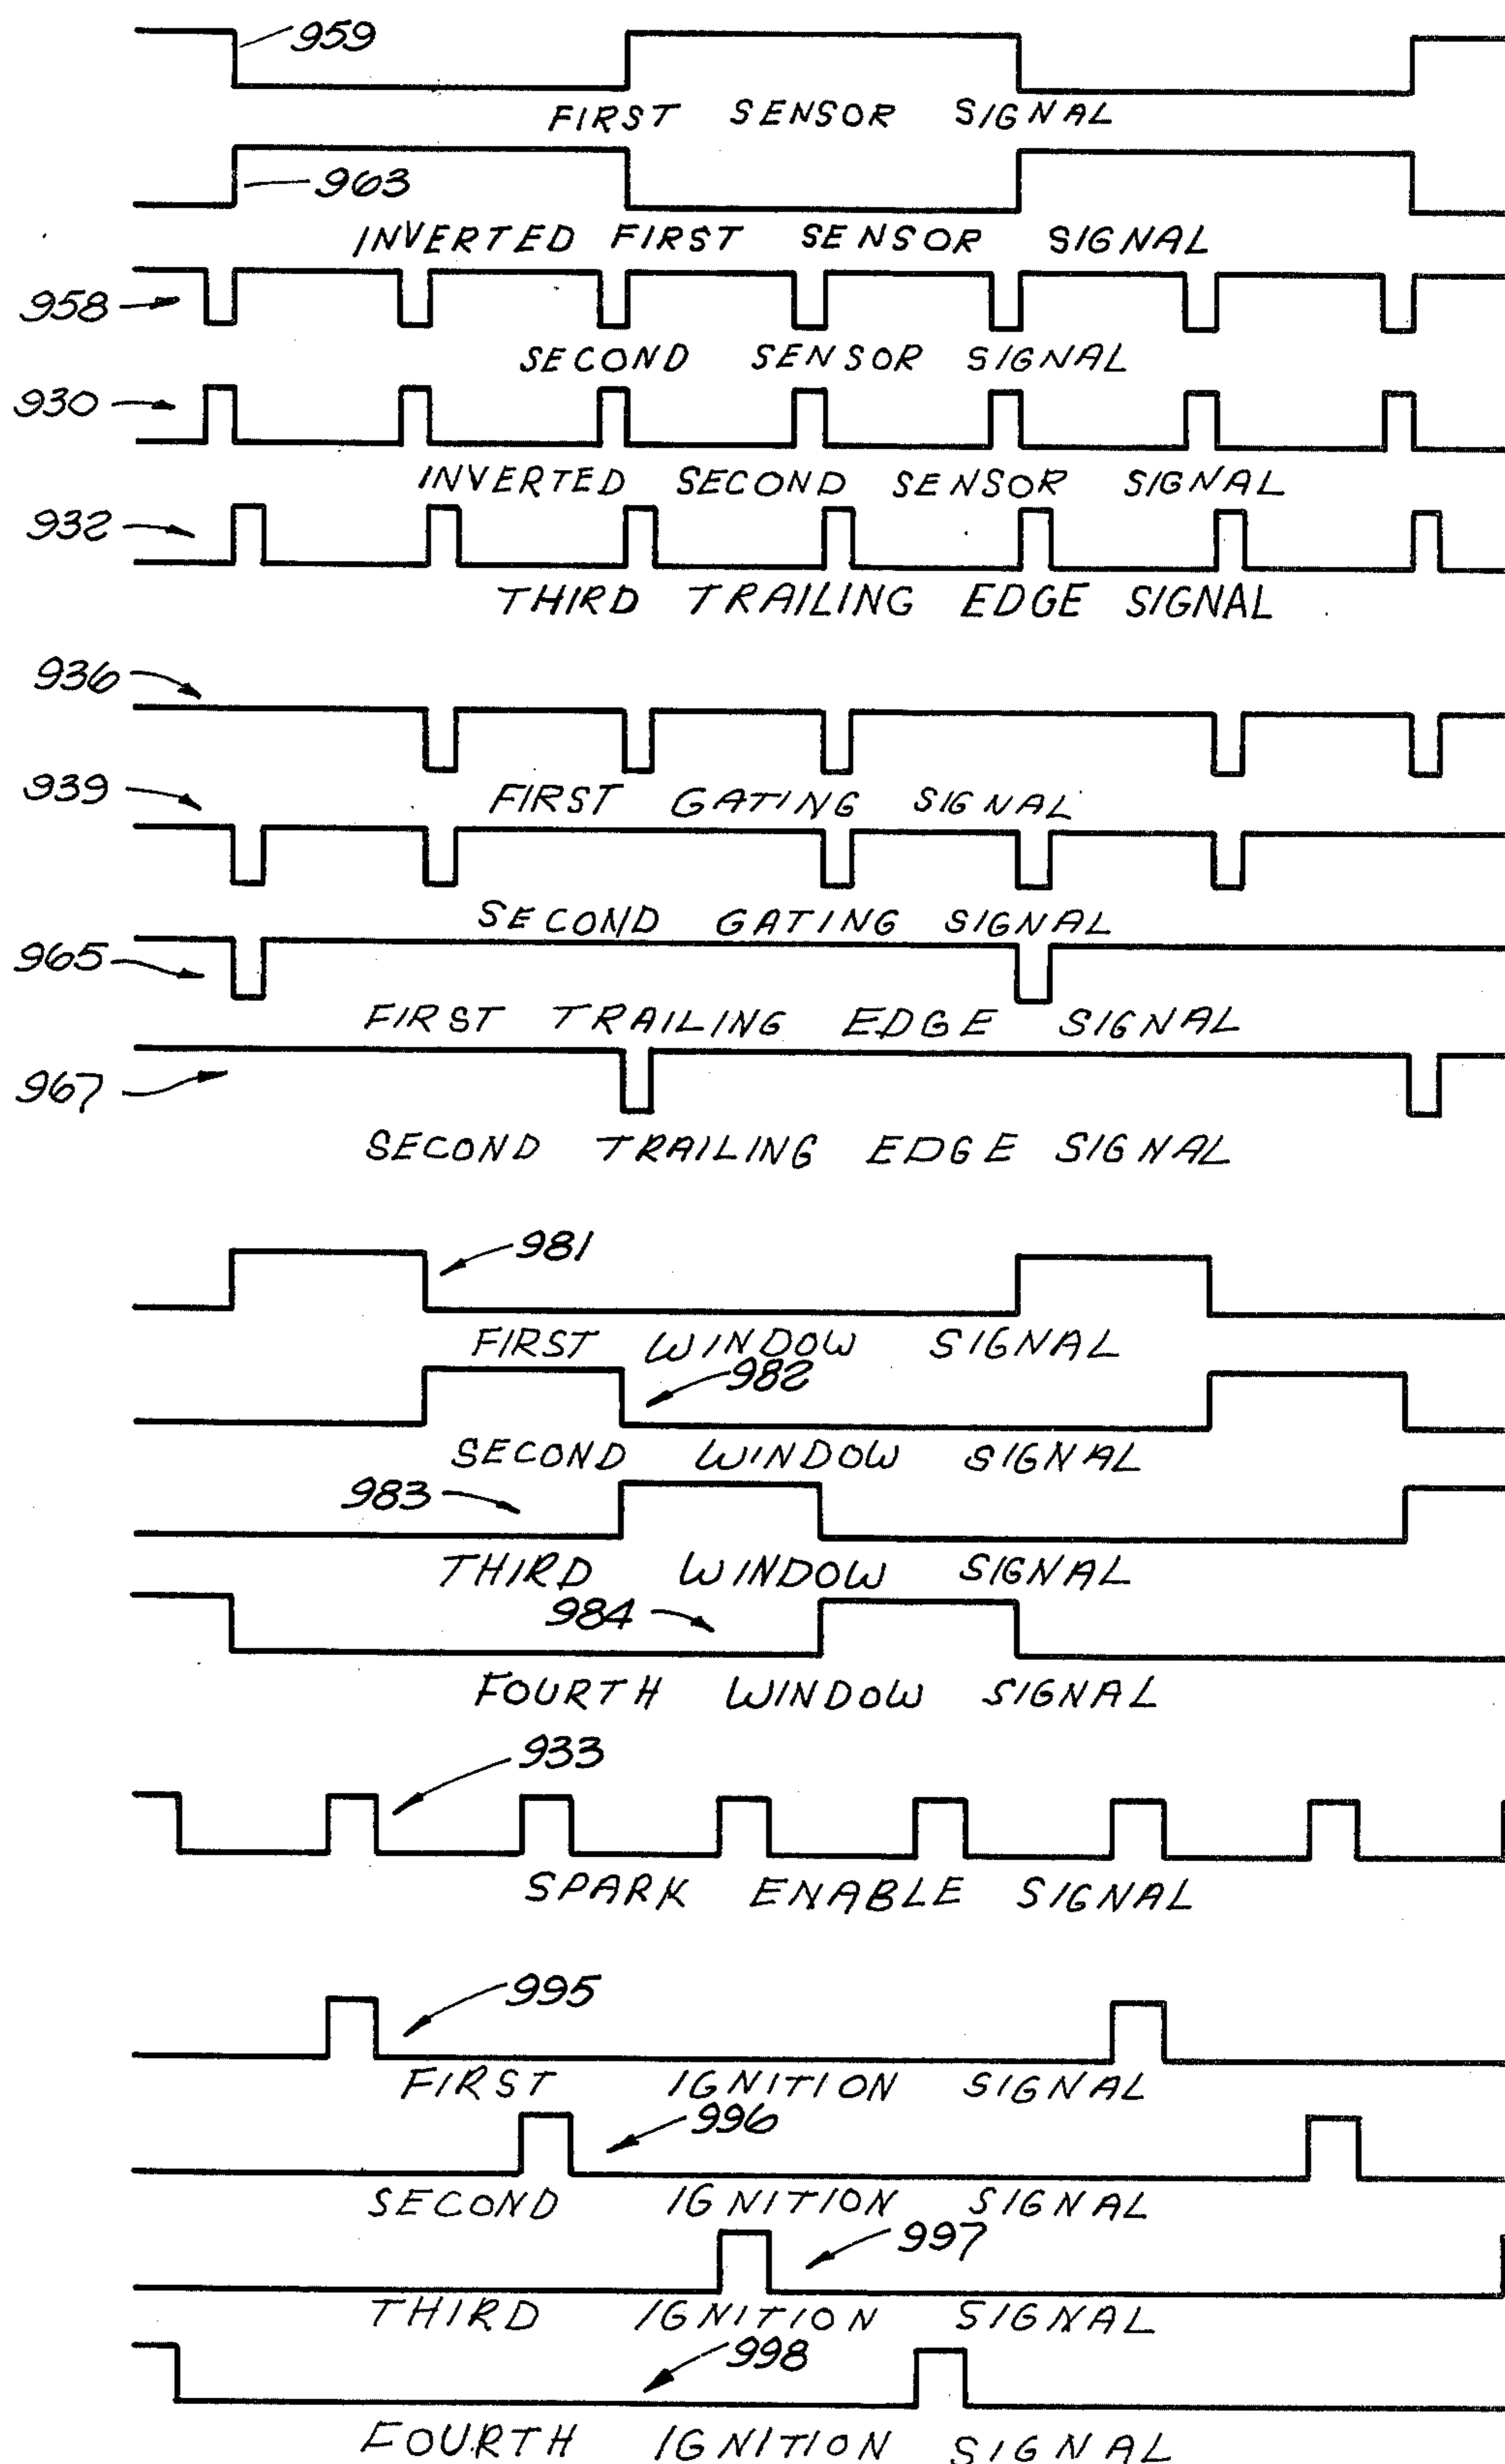 959
FIRST SENSOR SIGNAL
963
INVERTED FIRST SENSOR SIGNAL
958
SECOND SENSOR SIGNAL
930
INVERTED SECOND SENSOR SIGNAL
932
THIRD TRAILING EDGE SIGNAL
936
FIRST GATING SIGNAL
939
SECOND GATING SIGNAL
965
FIRST TRAILING EDGE SIGNAL
967
SECOND TRAILING EDGE SIGNAL
981
FIRST WINDOW SIGNAL
982
SECOND WINDOW SIGNAL
983
THIRD WINDOW SIGNAL
984
FOURTH WINDOW SIGNAL
933
SPARK ENABLE SIGNAL
995
FIRST IGNITION SIGNAL
996
SECOND IGNITION SIGNAL
997
THIRD IGNITION SIGNAL
998
FOURTH IGNITION SIGNAL